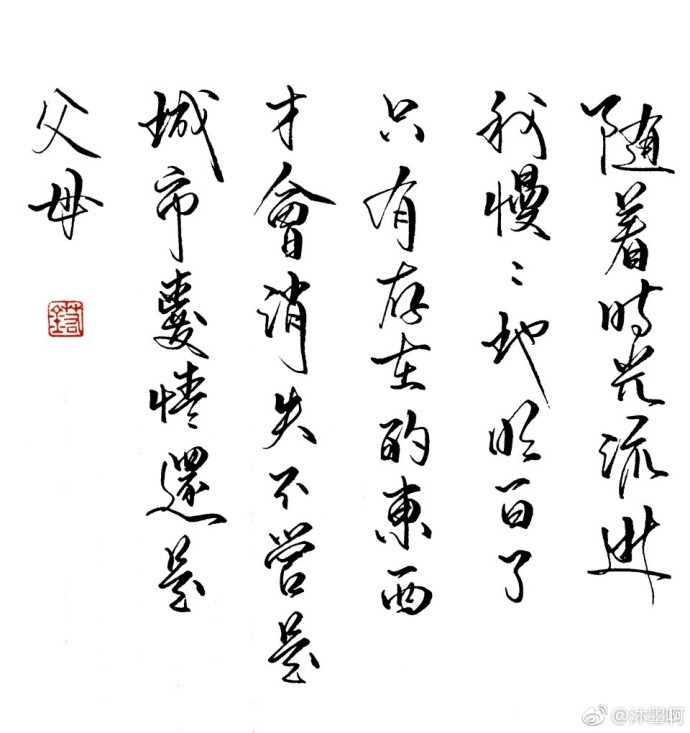 随着時光流逝
我慢慢地明白了
只有存在的東西
才會消失不管是
城市愛情還是
父母
@沐墨啊